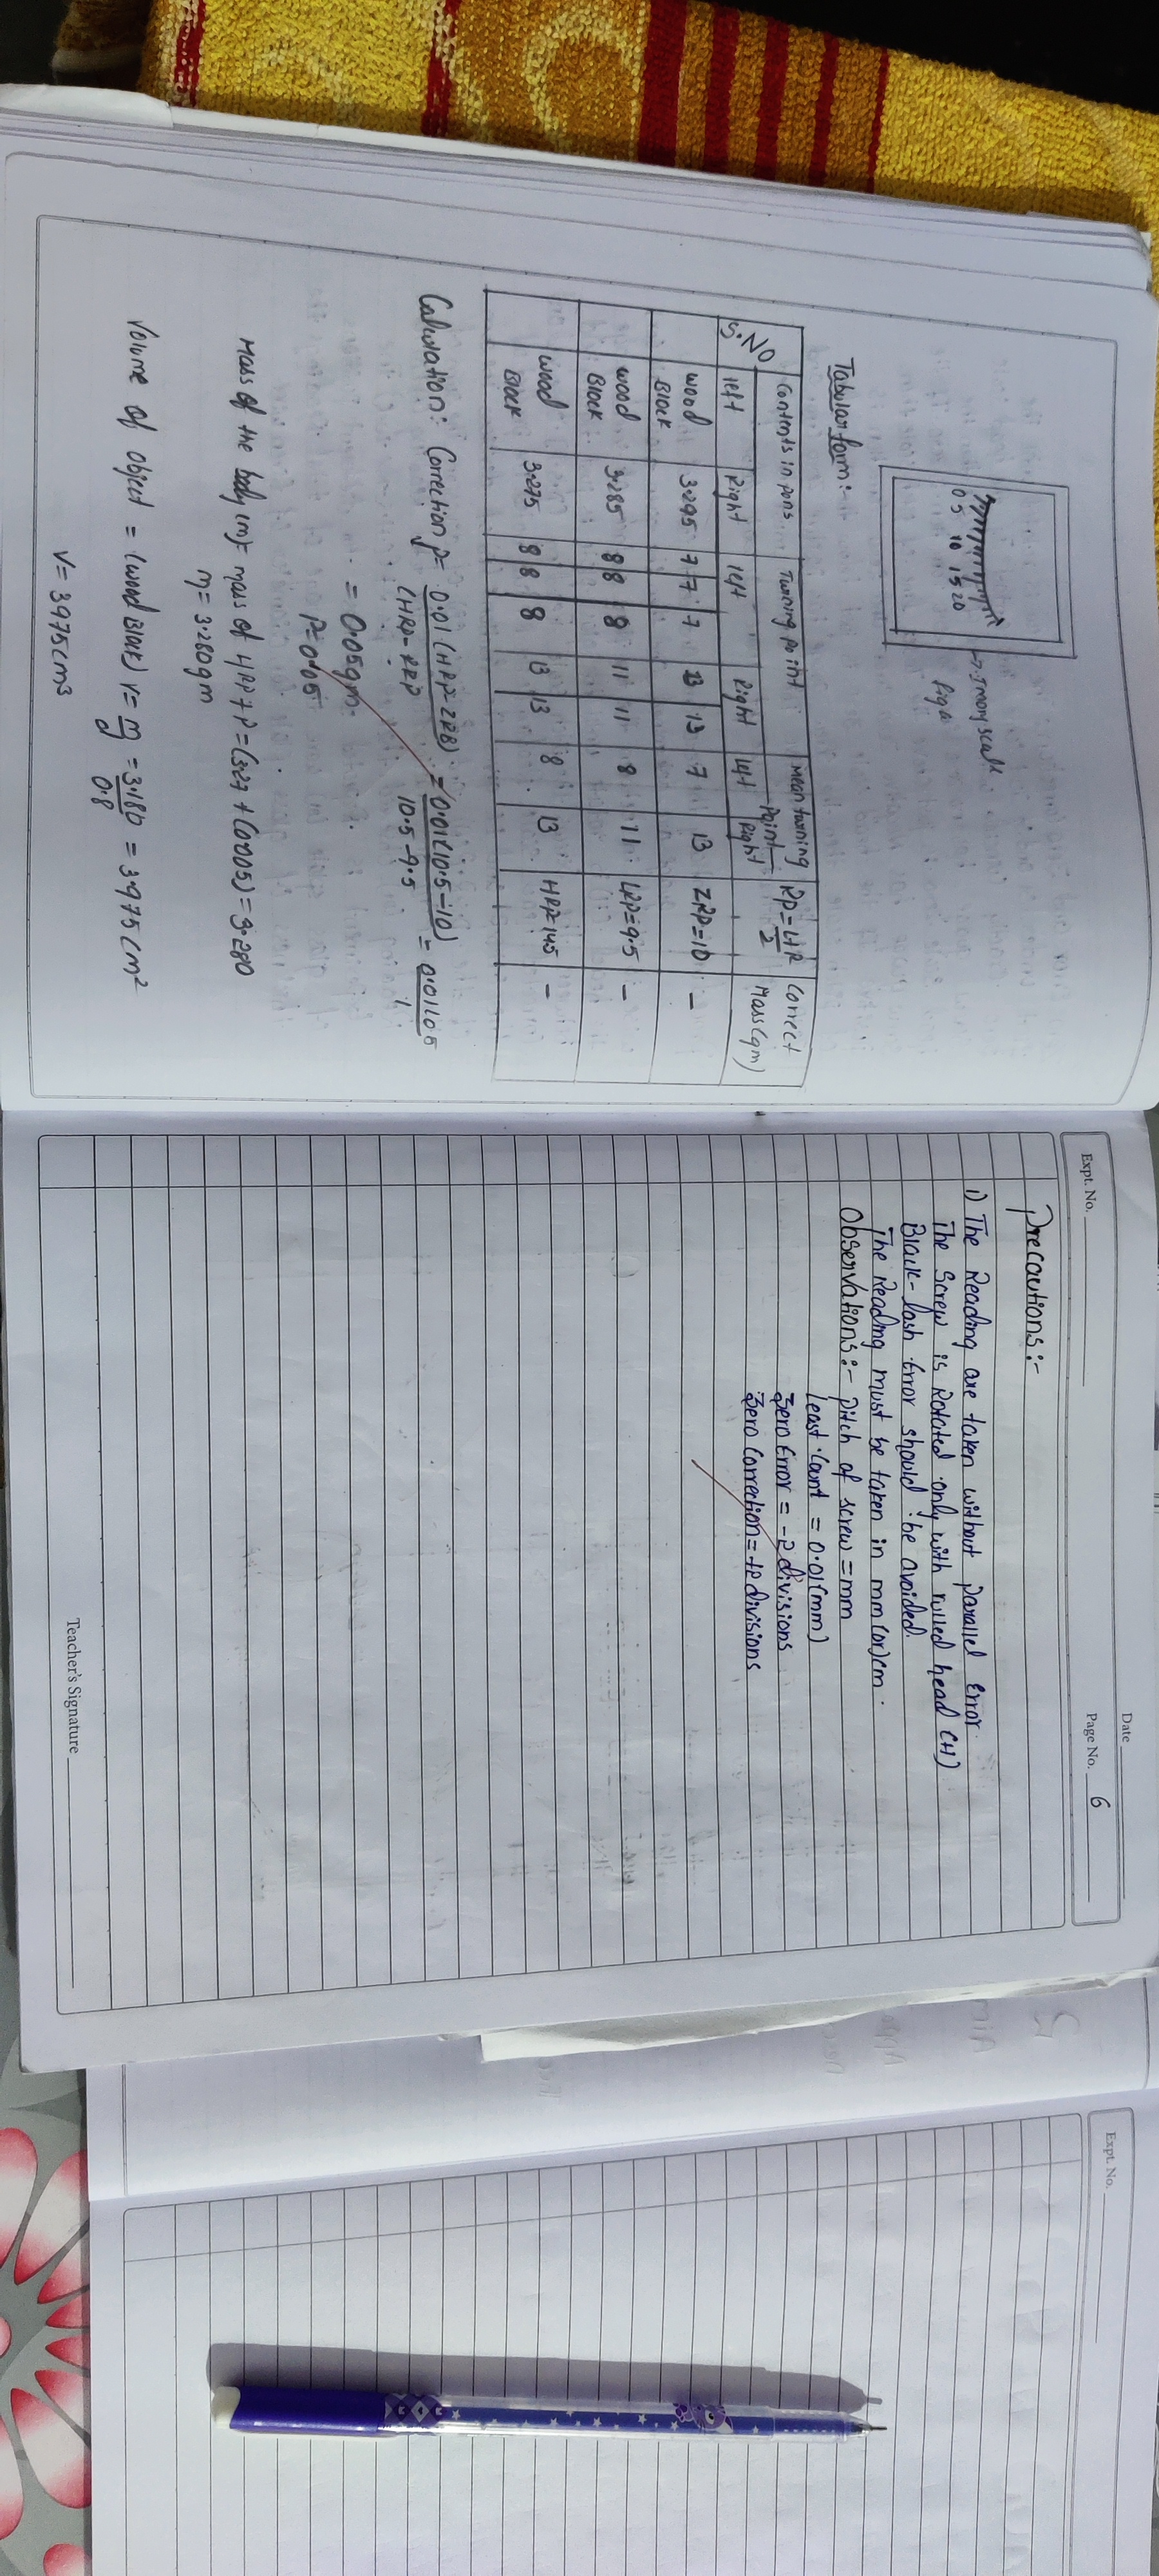 0 5 10 15 20
→ Imory scale
fig:
Tabular form:-
S.NO Contents in pans Turning point Mean turning Point RP=L+R/2 Correct Mass(gm)
left Right left Right left Right
wood Block 3.295 7 7 7 13 13 7 13 ZRP=10 -
wood Block 3.285 8 8 8 11 11 8 11 LRP=9.5 -
wood Block 3.275 8 8 8 13 13 8 13 HRP=
Calculation: Correction p= 0.01(HRP-ZRB)/(HRP-RRP = 0.01(10.5-10)/10.5-9.5 = 0.01
= 0.05gm.
P=0.05
Mass of the body (m)= mass of +P=(3.27+(0.005)=3.280
m=3.280gm
Volume of object = (wood Block) v= = 3.180/0.8 = 3.975cm²
V=3.975cm³
Expt. No.
Date
Page No. 6
Precautions:-
1) The Reading are taken without parallel Error.
The Screw is Rotated only with rulled head (H)
Black-lash Error should be avoided.
The Reading must be taken in mm(or)cm.
Observations:- pitch of screw=mm
least count = 0.01(mm)
Zero Error = -2 divisions
Zero Correction=+2 divisions
Teacher's Signature
Expt. No.